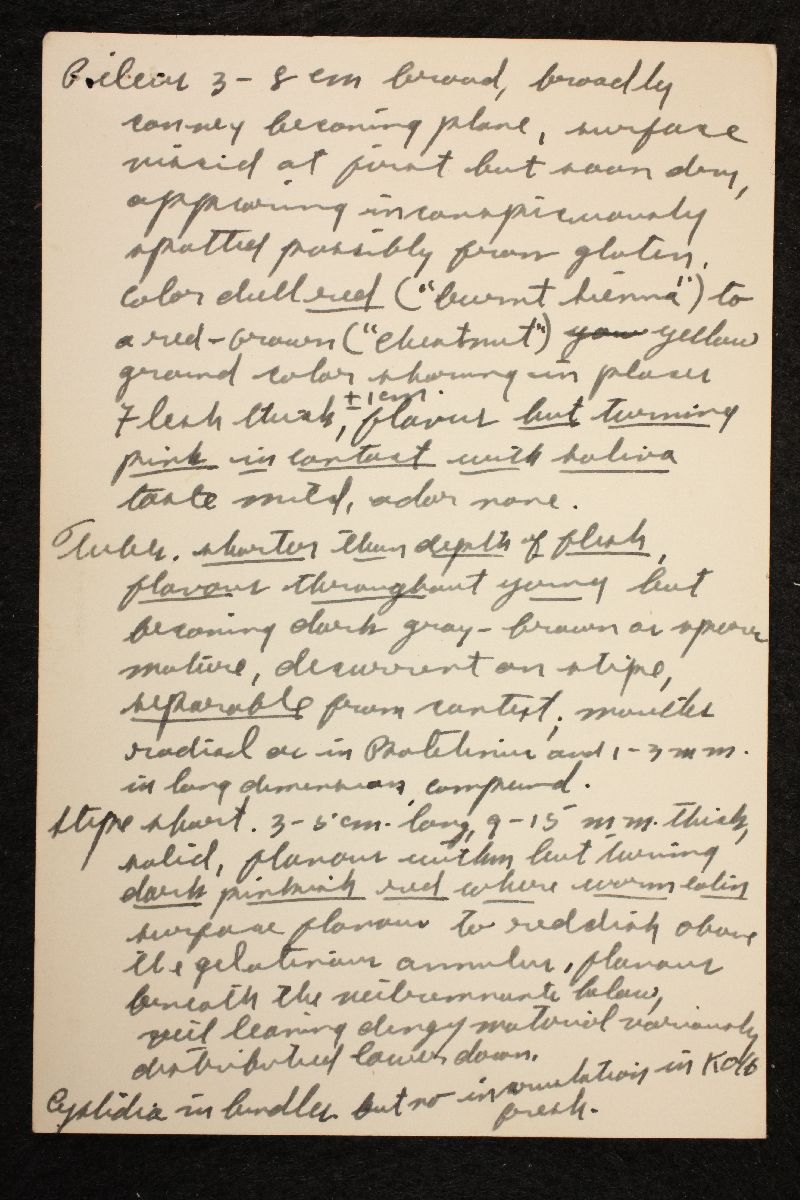 Pileus 3-8 cm broad, broadly
convex becoming plane, surface
viscid at first but soon dry,
appearing inconspicuously
spotted possibly from gluten,
color dull red ("burnt sienna") to
a red-brown ("chestnut") yellow
ground color showing in places
Flesh thick, ±1cm. flavus but turning
pink in contact with saliva
taste mild, odor none.
Tubes. shorter than depth of flesh,
flavous throughout young but
becoming dark gray-brown as spores
mature, decurrent on stipe,
separable from context, mouths
radial as in Boletinus and 1-3 mm.
in long dimension, compound.
Stipe short. 3-5 cm. long, 9-15 mm. thick,
solid, flavous within but turning
dark pinkish red where worm eaten
surface flavous to reddish above
the gelatinous annulus, flavous
beneath the veil remnants below,
veil leaving dingy material variously
distributed lower down.
Cystidia in bundles but no in KOH
fresh.